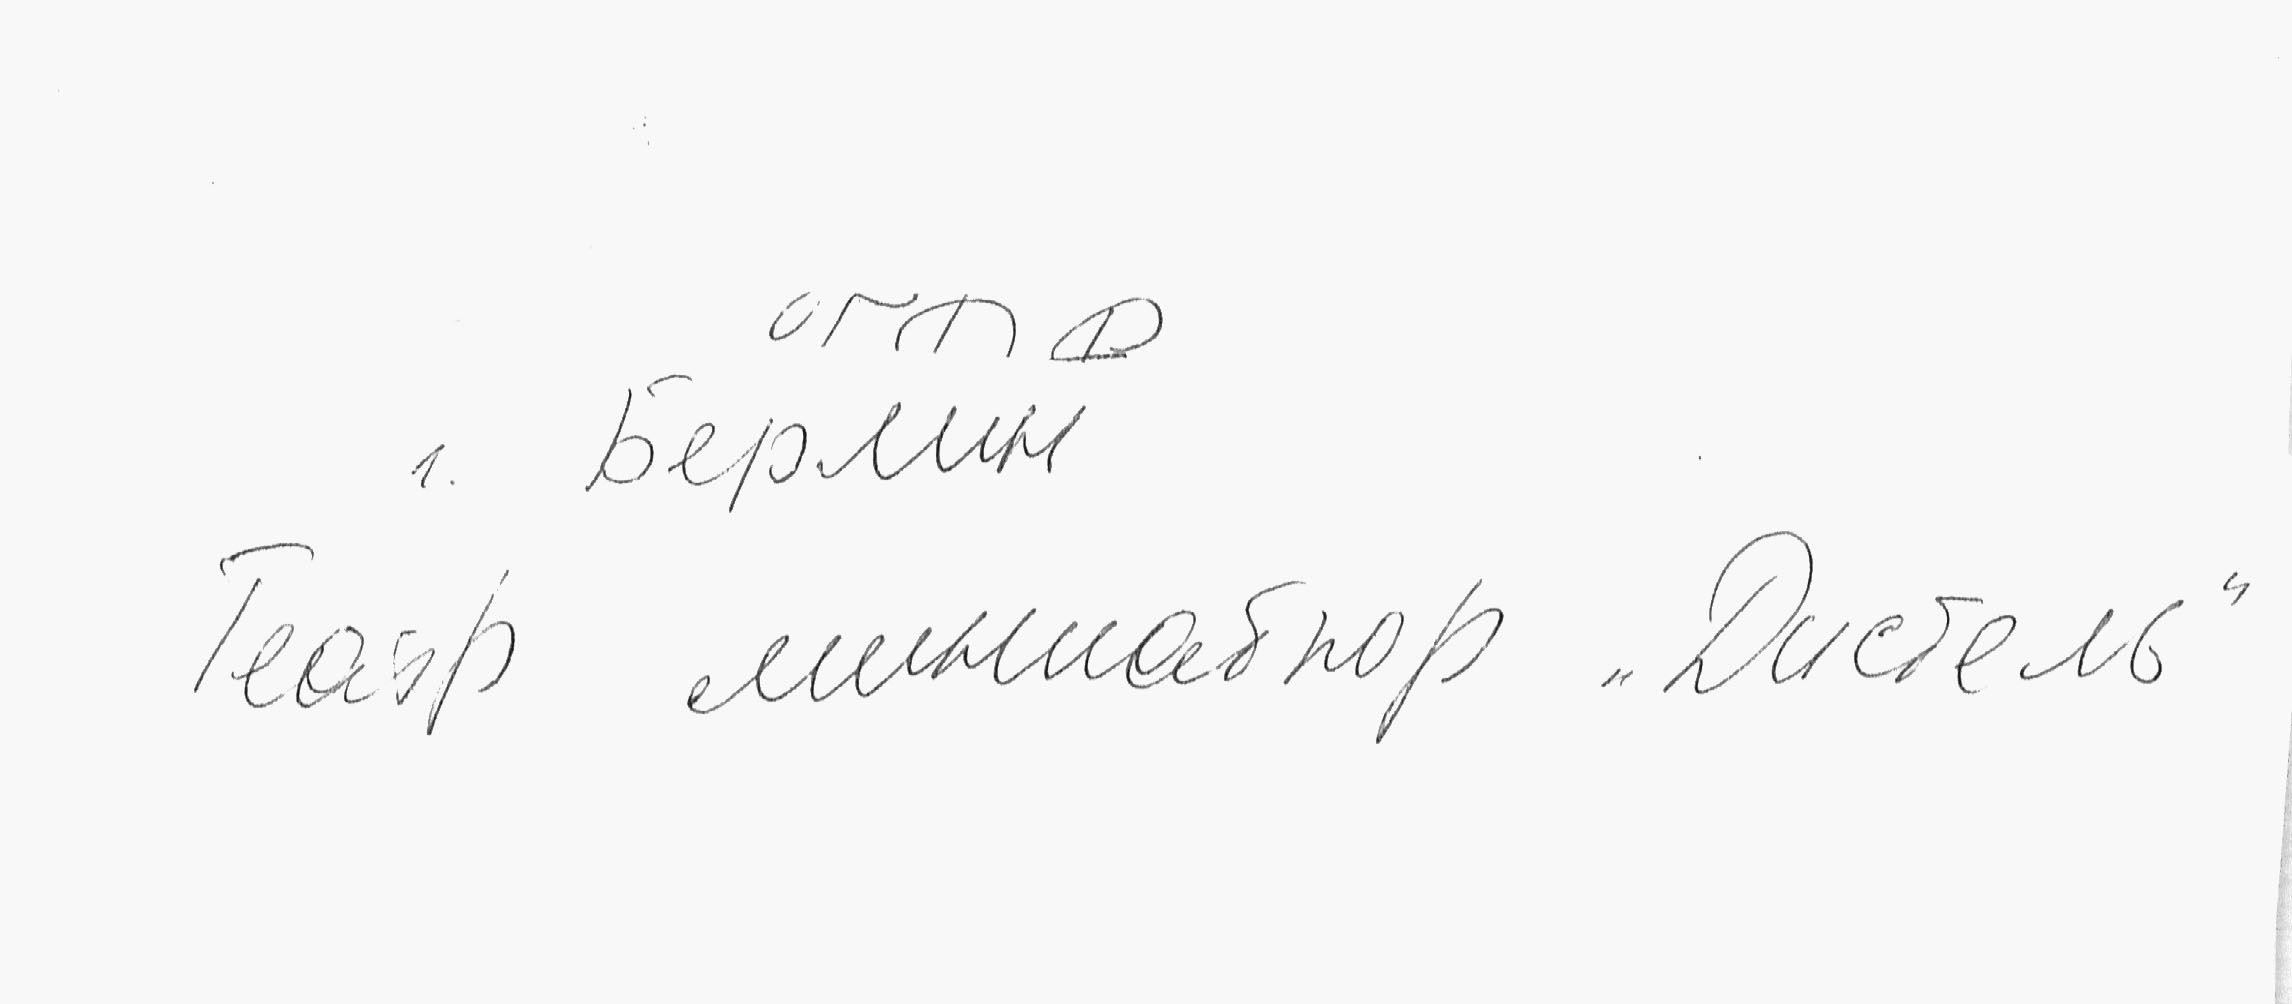 г. Берлин
Театр миниатюр „Дистель“